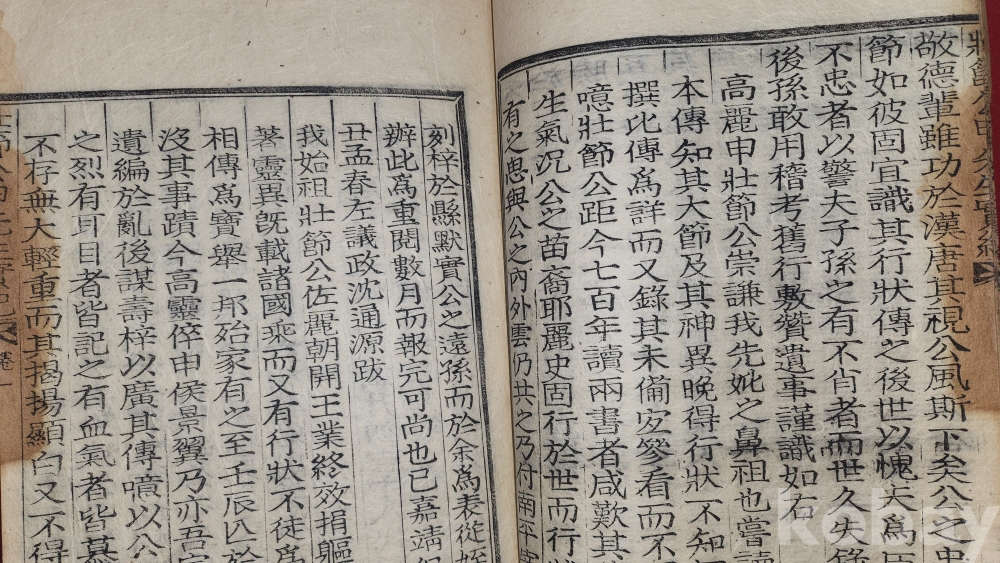 敬德輩雖功於漢唐其視公風斯下矣公之忠
節如彼固宜識其行狀傳之後世以愧夫爲臣
不忠者以警夫子孫之有不肖者而世久失錄
後孫敢用稽考舊行敷贊遺事謹識如右
高麗申壯節公崇謙我先妣之鼻祖也嘗讀
本傳知其大節及其神異晚得行狀不知
撰比傳爲詳而又錄其未備宜參看而不
噫壯節公距今七百年讀兩書者咸歎其
生氣況公之苗裔耶麗史固行於世而行
有之思與公之內外雲仍共之乃付南平
刻梓於縣默實公之遠孫而於余爲表從姪
辦此爲重閱數月而報完可尚也已嘉靖
丑孟春左議政沈通源跋
我始祖壯節公佐麗朝開王業終效捐軀
著靈異旣載諸國乘而又有行狀不徒爲
相傳爲寶舉一邦殆家有之至壬辰亾於
沒其事蹟今高靈倅申侯景翼乃亦吾
遺編於亂後謀壽梓以廣其傳噫以公
之烈有耳目者皆記之有血氣者皆慕
不存無大輕重而其揭揚顯白又不得
kobay